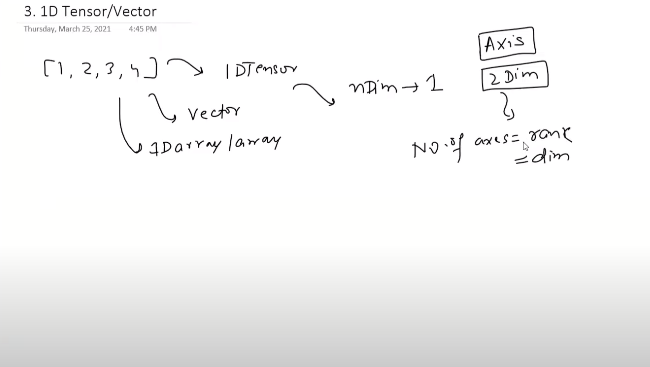 3. 1D Tensor/Vector
Thursday, March 25, 2021 4:45 PM
[1, 2, 3, 4] 1DTensor
nDim → 1
Vector
1Darray/array
Axis
2 Dim
No. of axes = rank
= dim